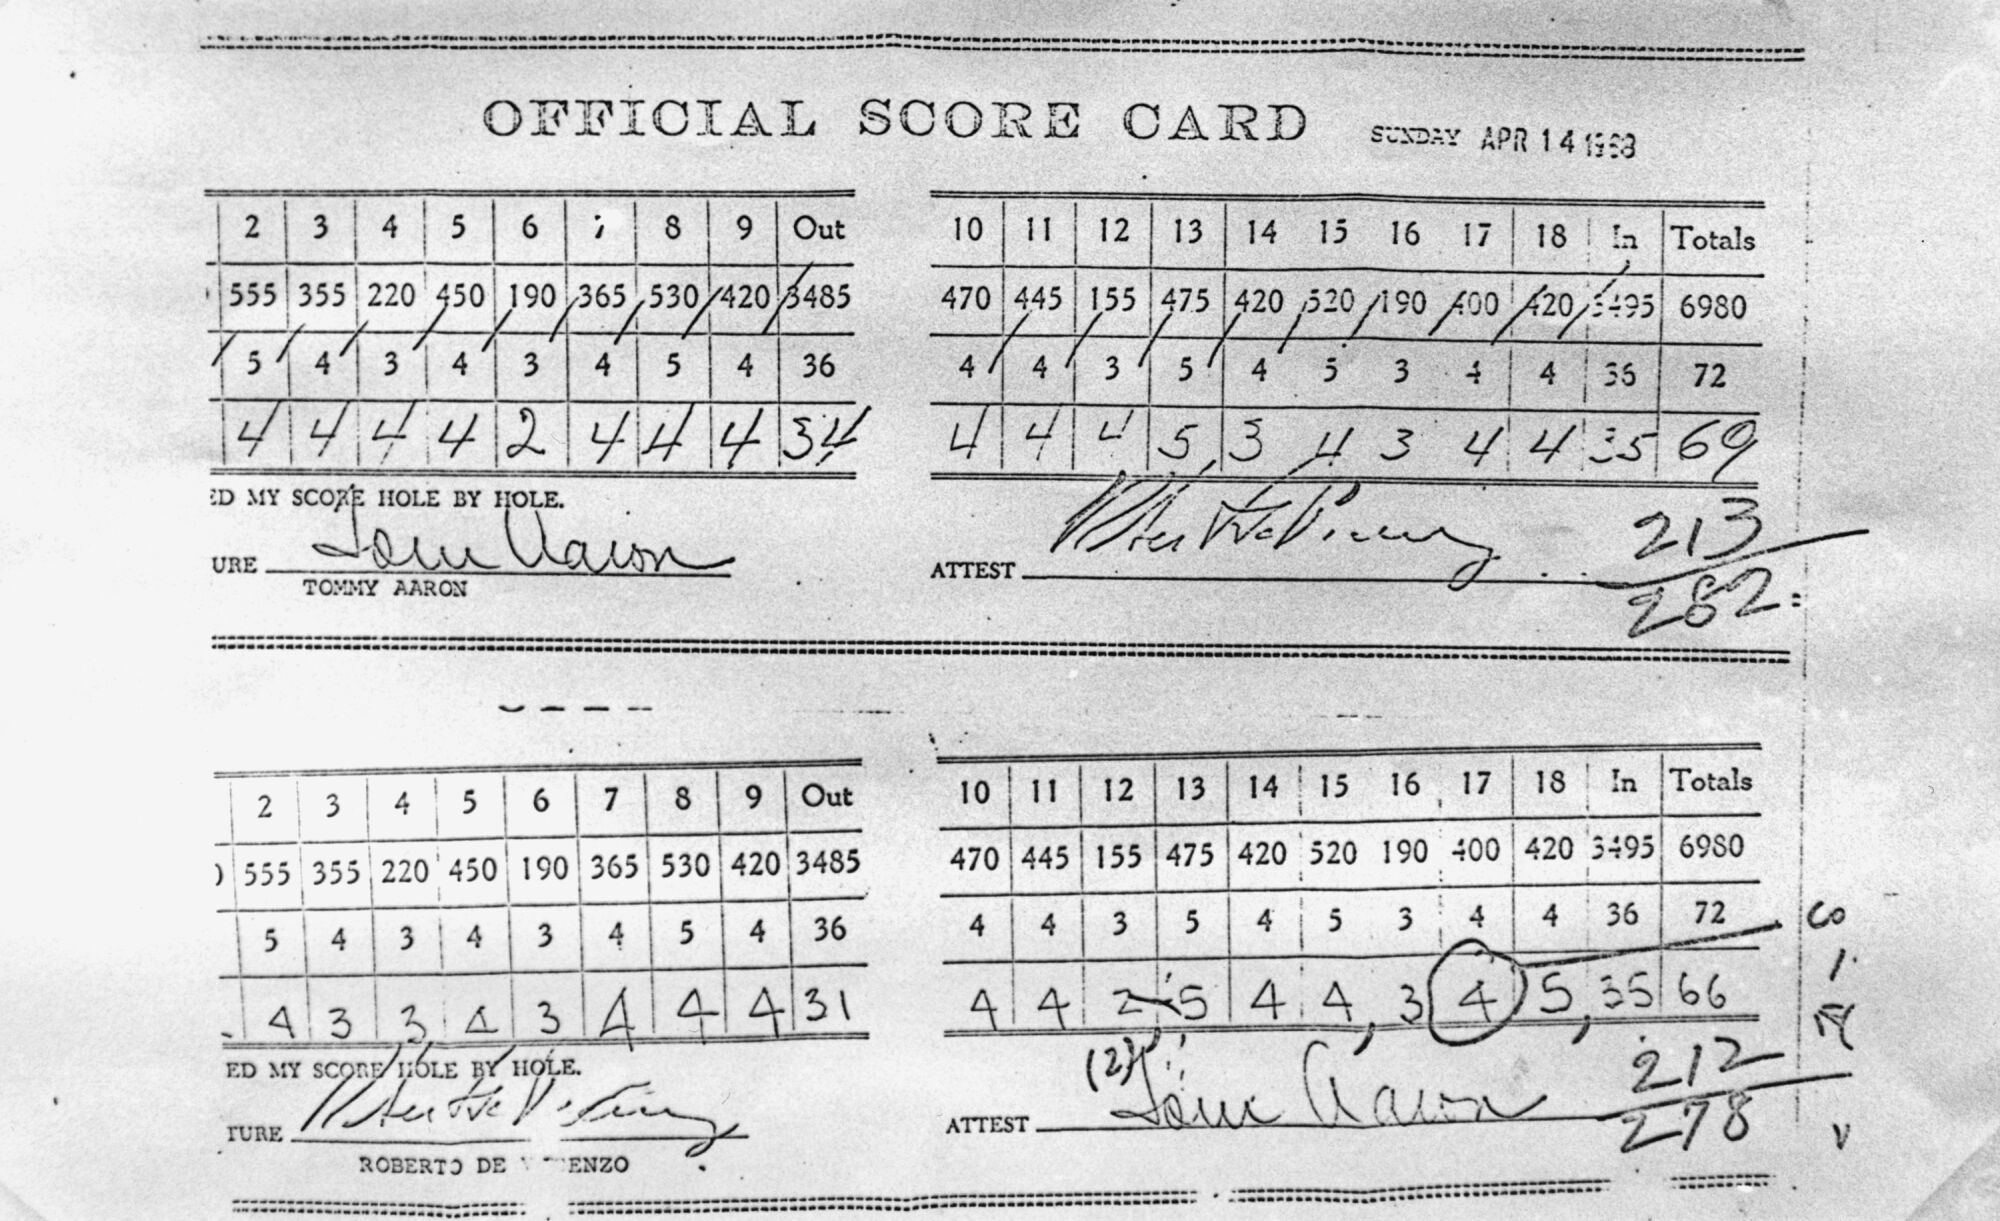 OFFICIAL SCORE CARD SUNDAY APR 14 1968
2 3 4 5 6 7 8 9 Out 10 11 12 13 14 15 16 17 18 In Totals
555 355 220 450 190 365 530 420 3485 470 445 155 475 420 520 190 400 420 3495 6980
5 4 3 4 3 4 5 4 36 4 4 3 5 4 5 3 4 4 36 72
4 4 4 4 2 4 4 4 34 4 4 4 5 3 4 3 4 4 35 69
ED MY SCORE HOLE BY HOLE.
213
URE Tom Aaron ATTEST
TOMMY AARON
282
2 3 4 5 6 7 8 9 Out 10 11 12 13 14 15 16 17 18 In Totals
555 355 220 450 190 365 530 420 3485 470 445 155 475 420 520 190 400 420 3495 6980
5 4 3 4 3 4 5 4 36 4 4 3 5 4 5 3 4 4 36 72
4 3 3 4 3 4 4 4 31 4 4 2 5 4 4 3 4 5 35 66
ED MY SCORE HOLE BY HOLE.
(2)
212
TURE ATTEST Tom Aaron
278
ROBERTO DE ENZO